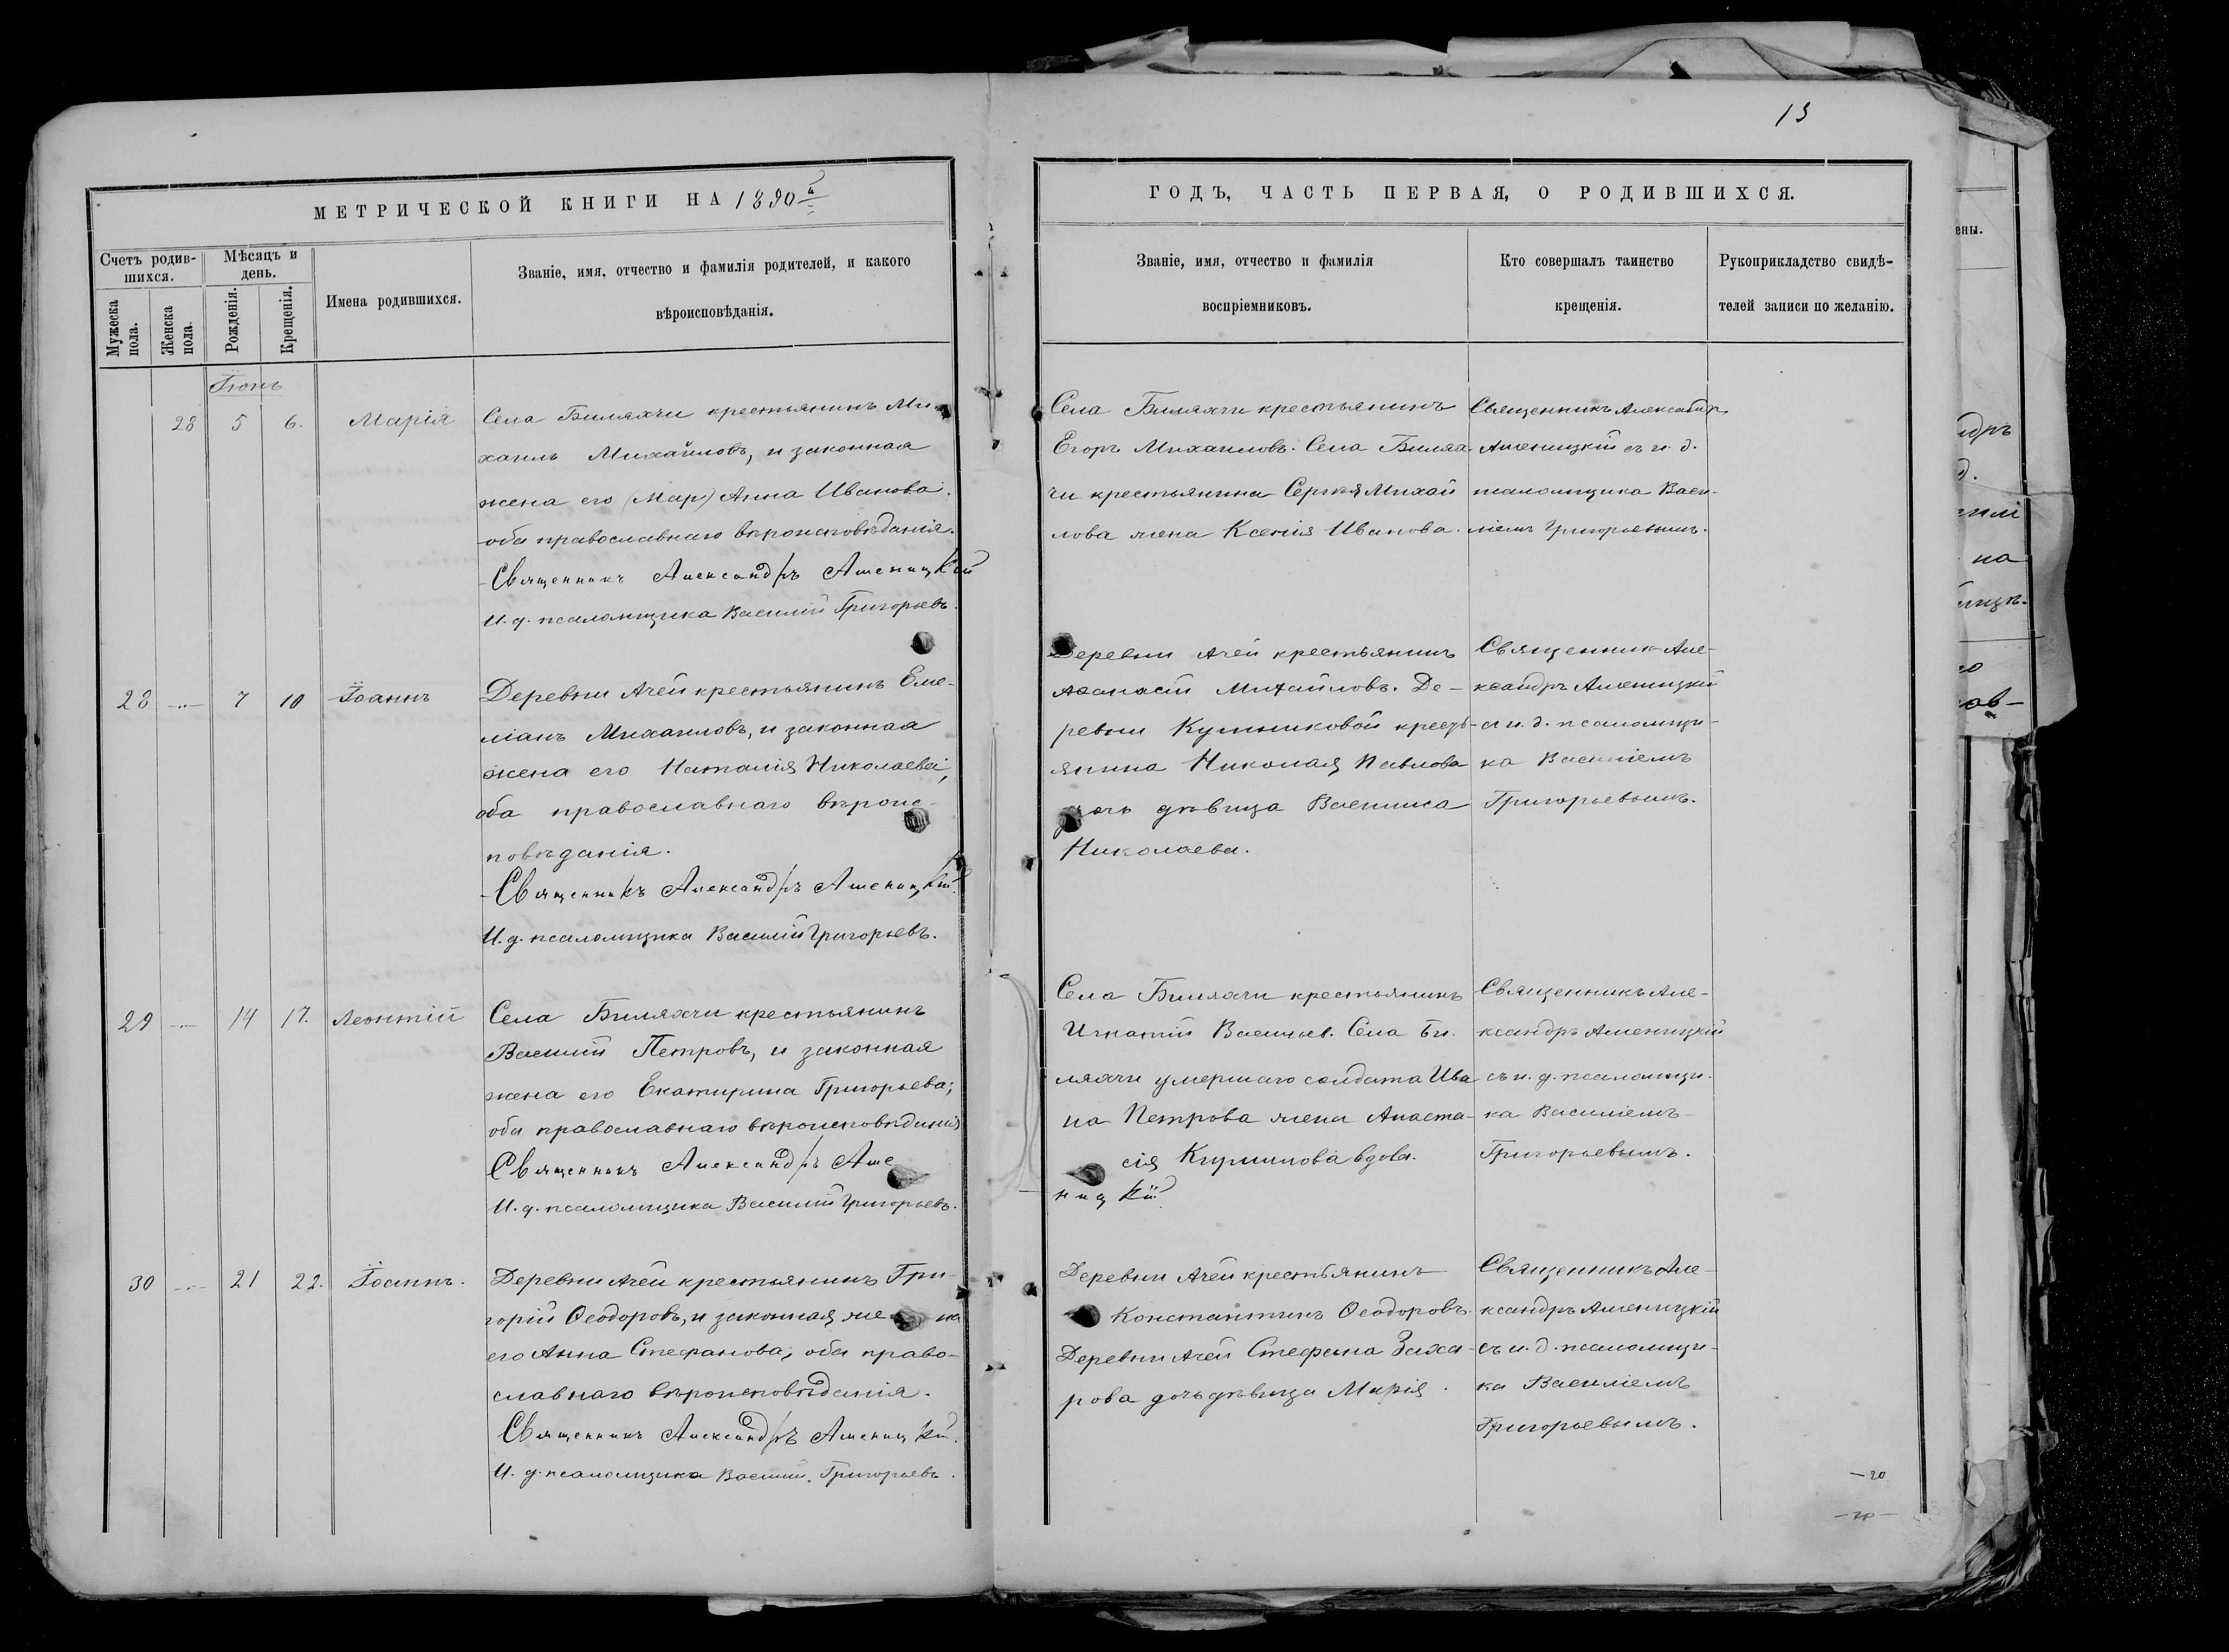 13
МЕТРИЧЕСКОЙ КНИГИ НА 1890й
ГОДЪ, ЧАСТЬ ПЕРВАЯ, О РОДИВШИХСЯ.
Счетъ родив-
шихся.
Мужеска пола.
Женска пола.
Мѣсяцъ и
день.
Рожденія.
Крещенія.
Имена родившихся.
Званіе, имя, отчество и фамилія родителей, и какого
вѣроисповѣданія.
Званіе, имя, отчество и фамилія
воспріемниковъ.
Кто совершалъ таинство
крещенія.
Рукоприкладство свидѣ-
телей записи по желанію.
Іюнь
28 5 6. Марія
Села Биляхчи крестьянинъ Ми-
хаилъ Михайловъ, и законная
жена его (Мар) Анна Иванова.
оба православнаго вѣроисповѣданія.
Священникъ Александръ Ашеницкій
И. д. псаломщика Василій Григорьевъ.
Села Биляхчи крестьянинъ
Егоръ Михаиловъ. Села Билях
чи крестьянина Сергѣя Михай
лова жена Ксенія Иванова.
Священникъ Александръ
Ашеницкій съ и. д.
псаломщика Васи-
ліемъ Григорьевымъ.
28 -"- 7 10 Іоаннъ
Деревни Ачей крестьянинъ Еме-
ліанъ Михаиловъ, и законная
жена его Наталія Николаева,
оба православнаго вѣроис-
повѣданія.
Священникъ Александръ Ашеницкій.
И. д. псаломщика Василій Григорьевъ.
Деревни Ачей крестьянинъ
Аѳанасій Михайловъ. Де-
ревни Кушниковой крест-
янина Николая Павлова
дочь дѣвица Василиса
Николаева.
Священникъ Але-
ксандръ Ашеницкій
съ и. д. псаломщи-
ка Василіемъ
Григорьевымъ.
29 -"- 14 17. Леонтій
Села Биляхчи крестьянинъ
Василій Петровъ, и законная
жена его Екатирина Григорьева;
оба православнаго вѣроисповѣданія
Священникъ Александръ Аше
ницкій
И. д. псаломщика Василій Григорьевъ.
Села Биляхчи крестьянинъ
Игнатій Васильев. Села Би-
ляхчи умершаго солдата Ива
на Петрова жена Анаста-
сія Кириллова вдова.
Священникъ Але-
ксандръ Ашеницкій
съ и. д. псаломщи-
ка Василіемъ
Григорьевымъ.
30 -"- 21 22. Іоаннъ.
Деревни Ачей крестьянинъ Гри-
горій Ѳеодоровъ, и законная жена
его Анна Стефанова; оба право-
славнаго вѣроисповѣданія.
Священникъ Александръ Ашеницкій.
И. д. псаломщика Василій Григорьевъ.
Деревни Ачей крестьянинъ
Константинъ Ѳеодоровъ.
Деревни Ачей Стефана Заха-
рова дочь дѣвица Марія.
Священникъ Але-
ксандръ Ашеницкій
съ и. д. псаломщи-
ка Василіемъ
Григорьевымъ.
-20